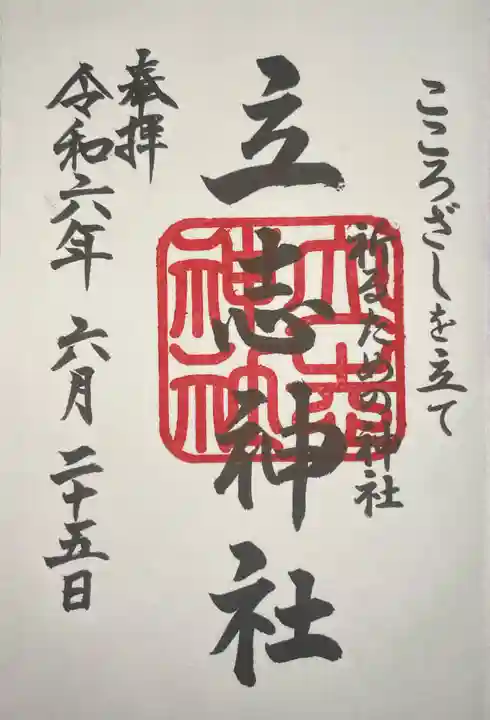 こころざしを立て
祈るための神社
立志神社
奉拝
令和六年 六月 二十五日
立志神社